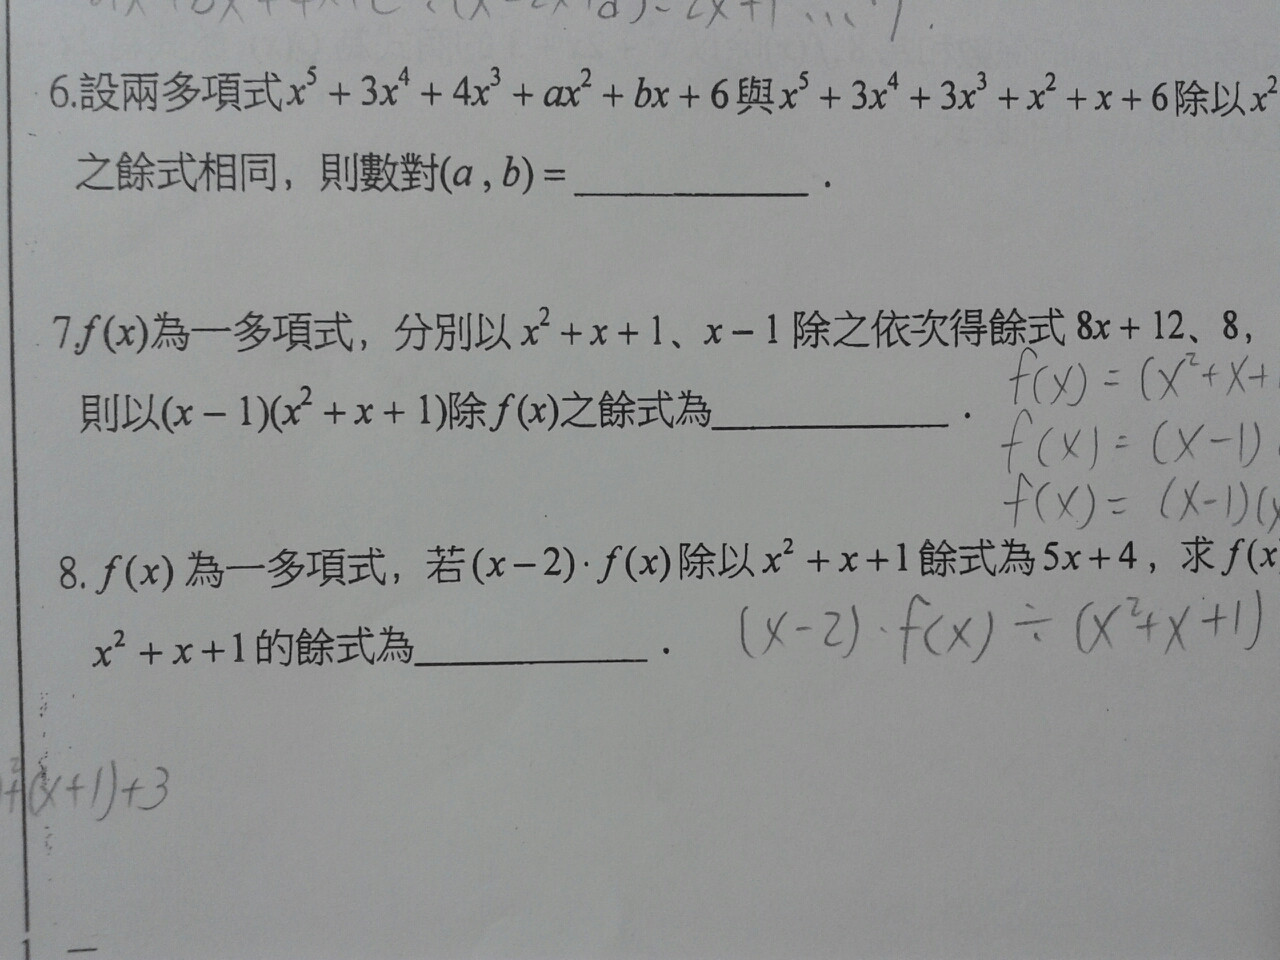 6.設兩多項式x⁵ + 3x⁴ + 4x³ + ax² + bx + 6與x⁵ + 3x⁴ + 3x³ + x² + x + 6除以x²
之餘式相同，則數對(a , b) = ____________ .
7.f(x)為一多項式，分別以x² + x + 1、x − 1 除之依次得餘式 8x + 12、8，
f(x) = (x² + x +
則以(x − 1)(x² + x + 1)除f(x)之餘式為____________ .
f(x) = (x−1)
f(x) = (x−1)(
8. f(x) 為一多項式，若(x−2)·f(x)除以x² + x+1餘式為5x+4，求f(x
x² + x+1的餘式為____________ .
(x−2)·f(x) ÷ (x²+x+1)
(x+1)+3
1 —